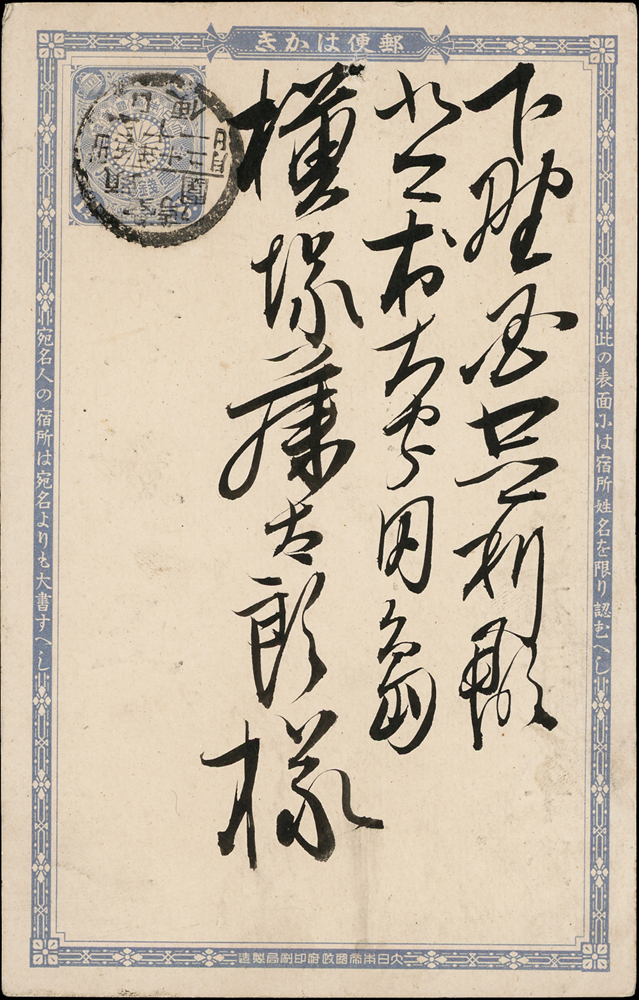 郵便はかき
此の表面には宿所姓名を限り認むへし
下野国足利郡
北郷村大字田島
横塚藤太郎様
宛名人の宿所は宛名よりも大書すへし
大日本帝國政府印刷局製造